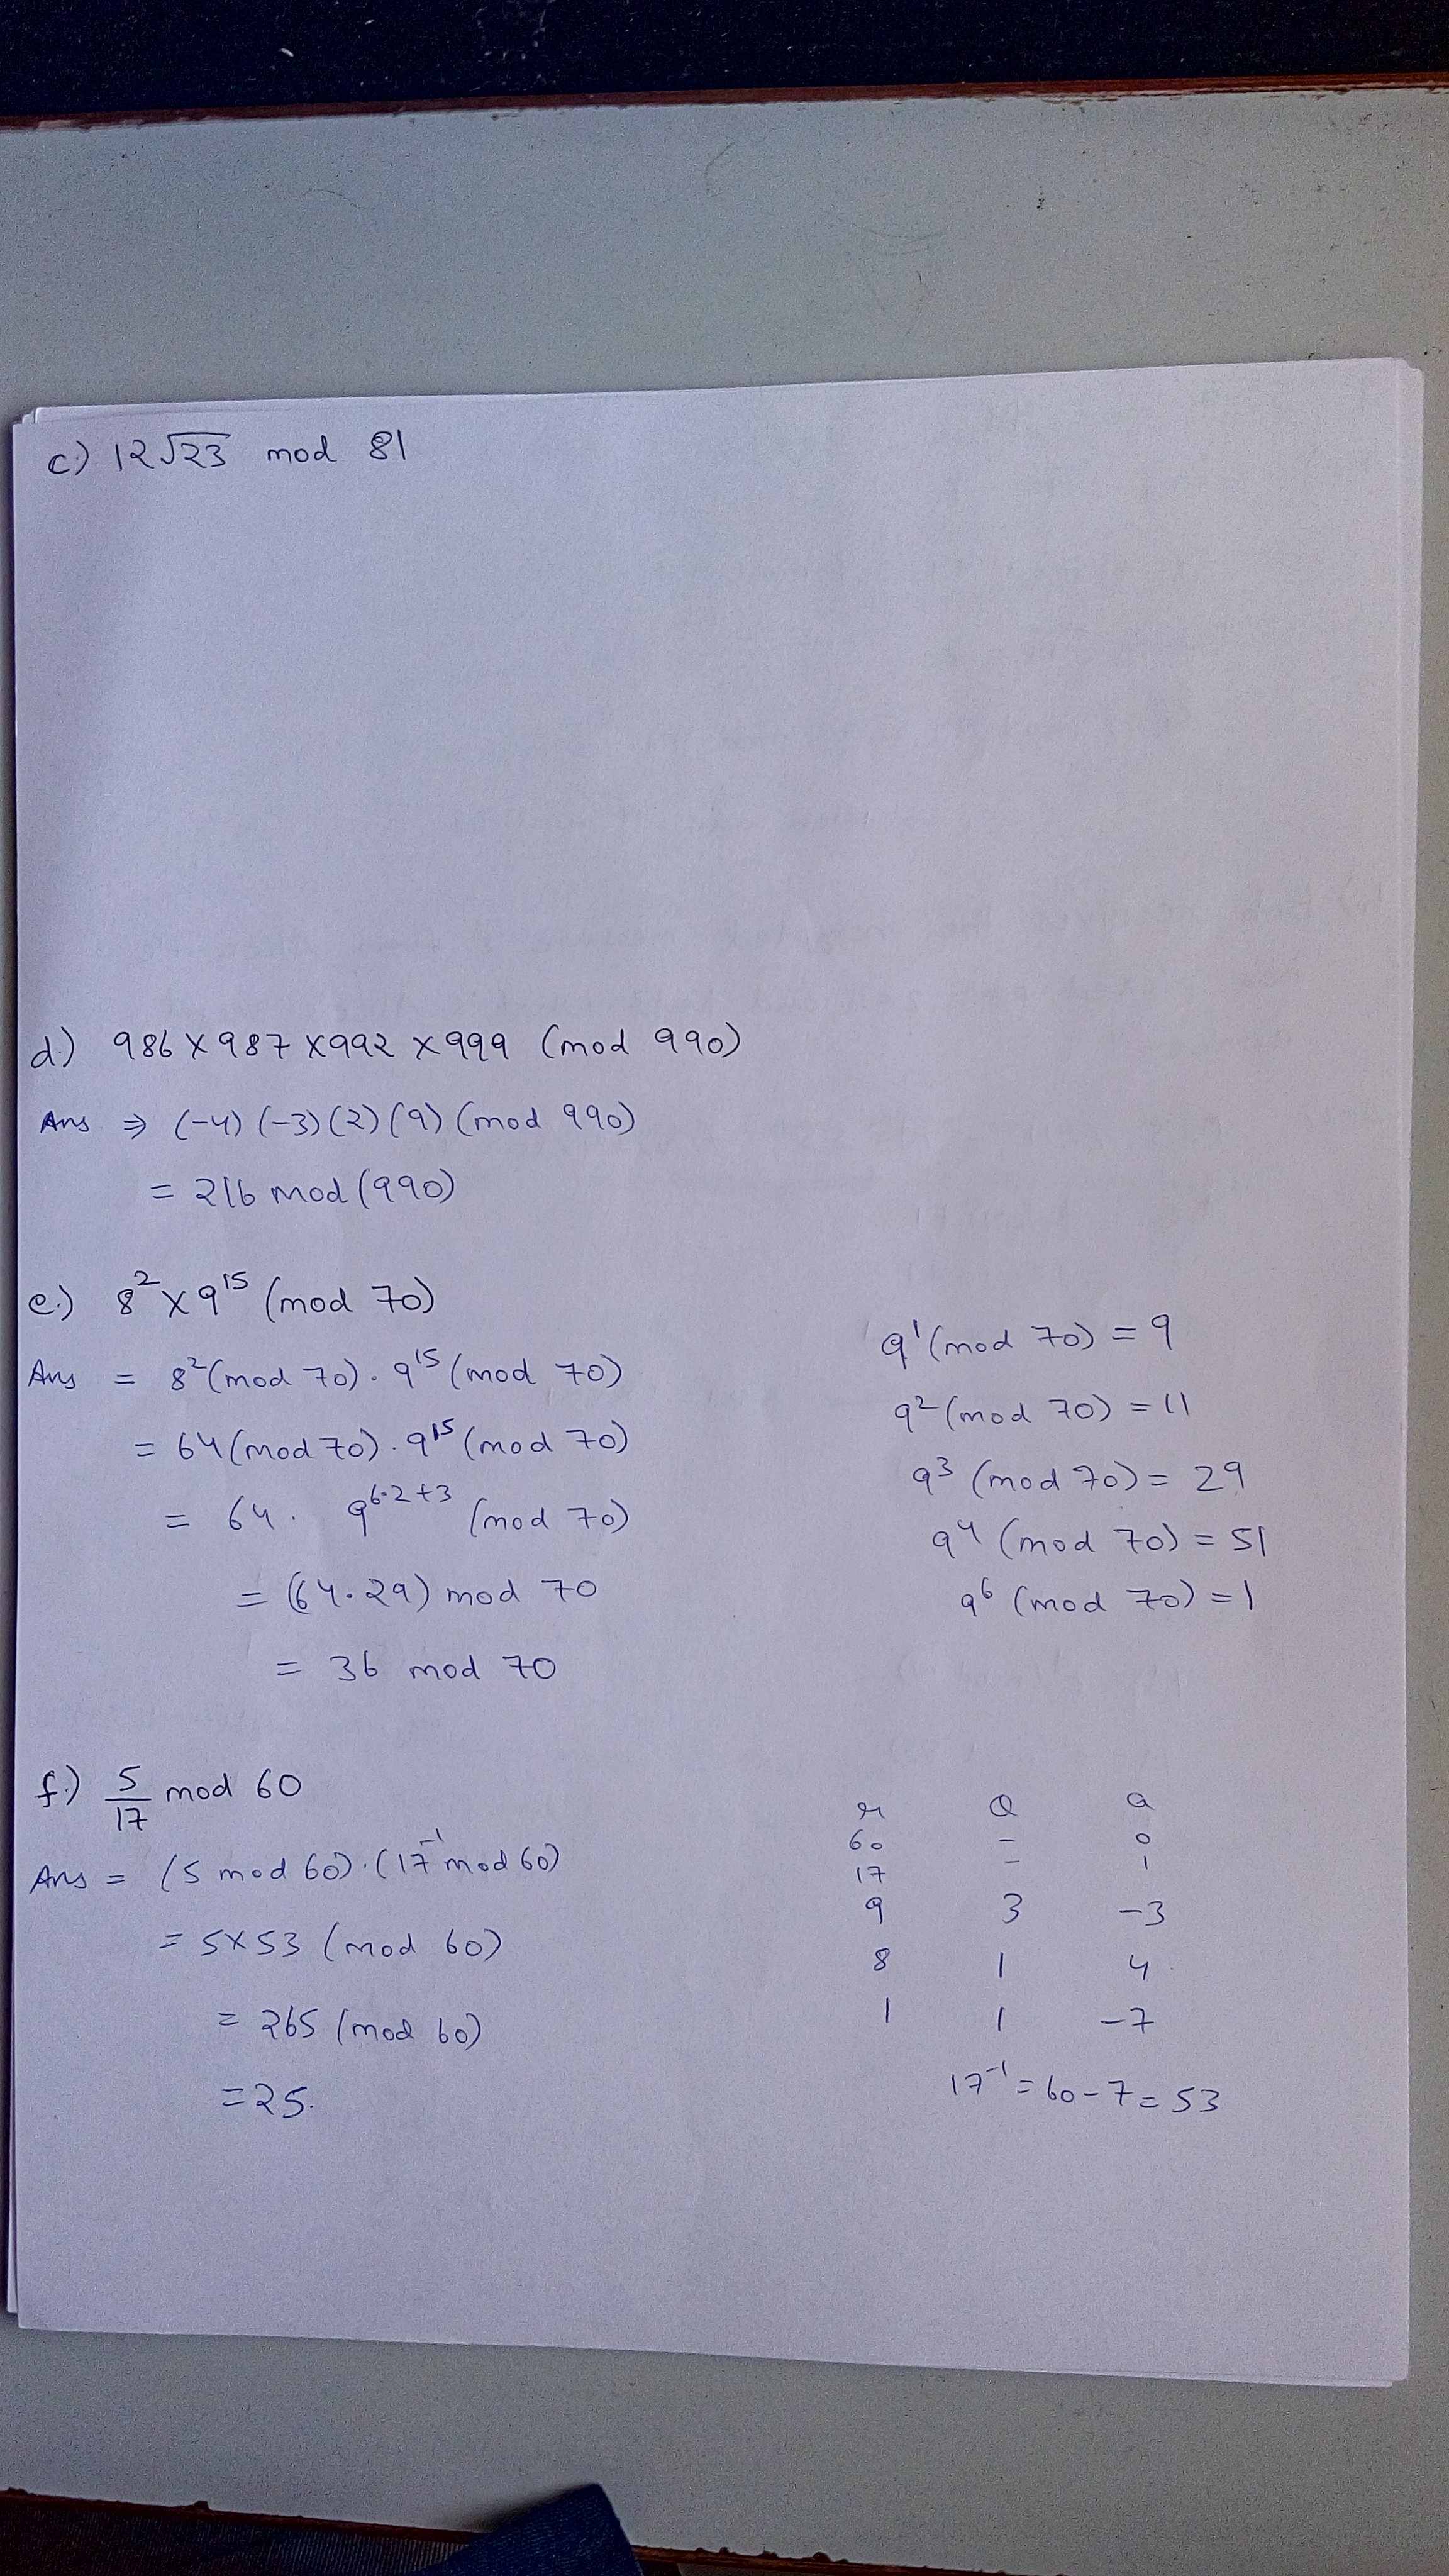 c.) 12√23 mod 81
d.) 986 × 987 × 992 × 999 (mod 990)
Ans ⇒ (-4) (-3) (2) (9) (mod 990)
= 216 mod (990)
e.) 8² × 9¹⁵ (mod 70)
Ans = 8² (mod 70) . 9¹⁵ (mod 70)
= 64 (mod 70) . 9¹⁵ (mod 70)
= 64 . 9⁶·²⁺³ (mod 70)
= (64 . 29) mod 70
= 36 mod 70
9¹ (mod 70) = 9
9² (mod 70) = 11
9³ (mod 70) = 29
9⁴ (mod 70) = 51
9⁶ (mod 70) = 1
f.) 5/17 mod 60
Ans = (5 mod 60) . (17⁻¹ mod 60)
= 5 × 53 (mod 60)
= 265 (mod 60)
= 25.
r Q a
60 – 0
17 – 1
9 3 -3
8 1 4
1 1 -7
17⁻¹ = 60 - 7 = 53